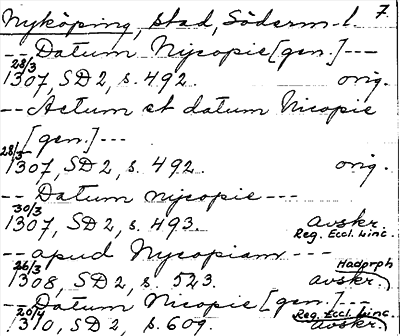 Nyköping, stad, Söderm. l. 7.
-- Datum Nycopie [gen.] ---
28/3 1307, SD 2, s. 492. orig.
-- Actum et datum Nicopie
[gen.] ---
28/3 1307, SD 2, s. 492. orig.
-- Datum nycopie ---
30/3 1307, SD 2, s. 493. avskr.
Reg. Eccl. Linc.
-- apud Nycopiam ---
26/3 1308, SD 2, s. 523. Hadprph avskr.
-- Datum Nicopie [gen.] ---
20/4 1310, SD 2, s. 609. Reg. Eccl. Linc. avskr.